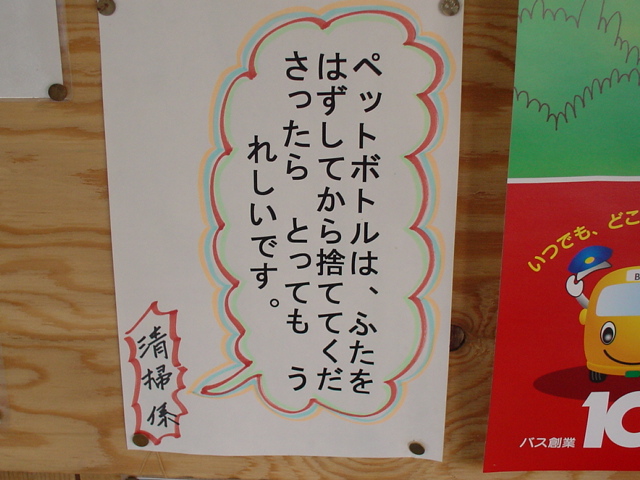 ペットボトルは、ふたを
はずしてから捨ててくだ
さったら とっても う
れしいです。
清掃係
いつでも、どこ
バス創業
10